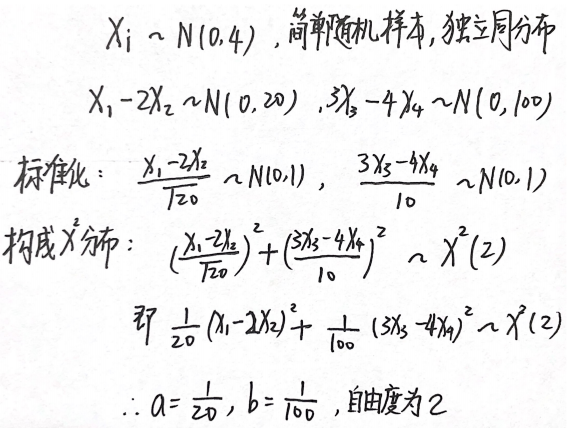 Xi ~ N(0,4) ，简单随机样本, 独立同分布
X₁-2X₂ ~N(0,20) , 3X₃-4X₄~N(0,100)
标准化： (X₁-2X₂)/√20 ~N(0,1) , (3X₃-4X₄)/10 ~N(0,1)
构成X²分布： ((X₁-2X₂)/√20)²+((3X₃-4X₄)/10)² ~ X²(2)
即 1/20 (X₁-2X₂)²+ 1/100 (3X₃-4X₄)² ~ X²(2)
∴ a= 1/20 , b= 1/100 , 自由度为2